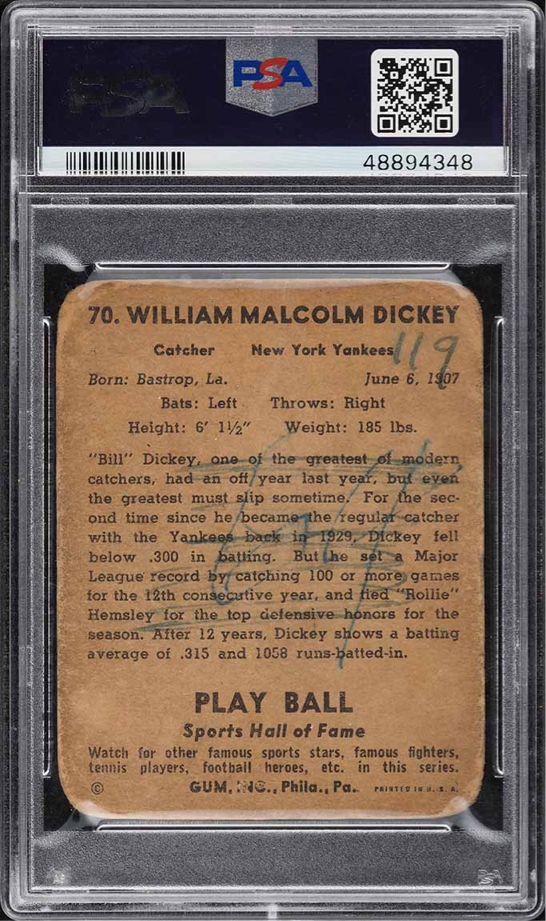 PSA
PSA
48894348
70. WILLIAM MALCOLM DICKEY
Catcher New York Yankees
119
Born: Bastrop, La. June 6, 1907
Bats: Left Throws: Right
Height: 6' 1½" Weight: 185 lbs.
"Bill" Dickey, one of the greatest of modern
catchers, had an off year last year, but even
the greatest must slip sometime. For the sec-
ond time since he became the regular catcher
with the Yankees back in 1929, Dickey fell
below .300 in batting. But he set a Major
League record by catching 100 or more games
for the 12th consecutive year, and tied "Rollie"
Hemsley for the top defensive honors for the
season. After 12 years, Dickey shows a batting
average of .315 and 1058 runs-batted-in.
PLAY BALL
Sports Hall of Fame
Watch for other famous sports stars, famous fighters,
tennis players, football heroes, etc. in this series.
© GUM, INC., Phila., Pa. PRINTED IN U. S. A.